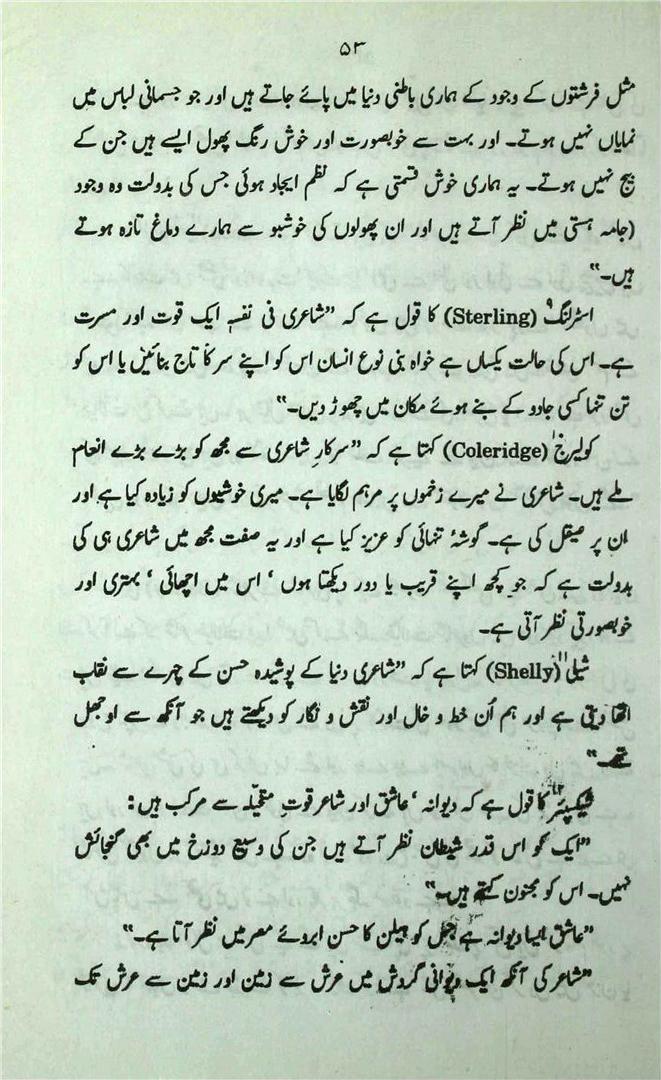 ۵۳
مثل فرشتوں کے وجود کے ہماری باطنی دنیا میں پائے جاتے ہیں اور جو جسمانی لباس میں
نمایاں نہیں ہوتے۔ اور بہت سے خوبصورت اور خوش رنگ پھول ایسے ہیں جن کے
بیج نہیں ہوتے۔ یہ ہماری خوش قسمتی ہے کہ نظم ایجاد ہوئی جس کی بدولت وہ وجود
(جامہ ہستی میں نظر آتے ہیں اور ان پھولوں کی خوشبو سے ہمارے دماغ تازہ ہوتے
ہیں۔"
اسٹرلنگ۹ (Sterling) کا قول ہے کہ "شاعری فی نفسہٖ ایک قوت اور مسرت
ہے۔ اس کی حالت یکساں ہے خواہ بنی نوع انسان اس کو اپنے سر کا تاج بنائیں یا اس کو
تن تنہا کسی جادو کے بنے ہوئے مکان میں چھوڑ دیں۔"
کولیرج۱۰ (Coleridge) کہتا ہے کہ "سرکارِ شاعری سے مجھ کو بڑے بڑے انعام
ملے ہیں۔ شاعری نے میرے زخموں پر مرہم لگایا ہے۔ میری خوشیوں کو زیادہ کیا ہے اور
ان پر صیقل کی ہے۔ گوشۂ تنہائی کو عزیز کیا ہے اور یہ صفت مجھ میں شاعری ہی کی
بدولت ہے کہ جو کچھ اپنے قریب یا دور دیکھتا ہوں ' اس میں اچھائی ' بہتری اور
خوبصورتی نظر آتی ہے۔
شیلی۱۱ (Shelly) کہتا ہے کہ "شاعری دنیا کے پوشیدہ حسن کے چہرے سے نقاب
اٹھا دیتی ہے اور ہم اُن خط و خال اور نقش و نگار کو دیکھتے ہیں جو آنکھ سے اوجھل
تھے۔"
شیکسپئر۱۲ کا قول ہے کہ دیوانہ ' عاشق اور شاعر قوتِ متخیلہ سے مرکب ہیں:
"ایک کو اس قدر شیطان نظر آتے ہیں جن کی وسیع دوزخ میں بھی گنجائش
نہیں۔ اس کو مجنون کہتے ہیں۔"
"عاشق ایسا دیوانہ ہے جس کو ہیلن کا حسن ابروئے مصر میں نظر آتا ہے۔"
"شاعر کی آنکھ ایک دیوانی گردش میں عرش سے زمین اور زمین سے عرش تک